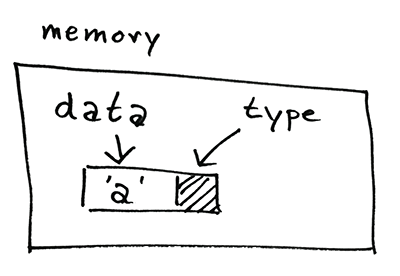 memory
data type
'a'